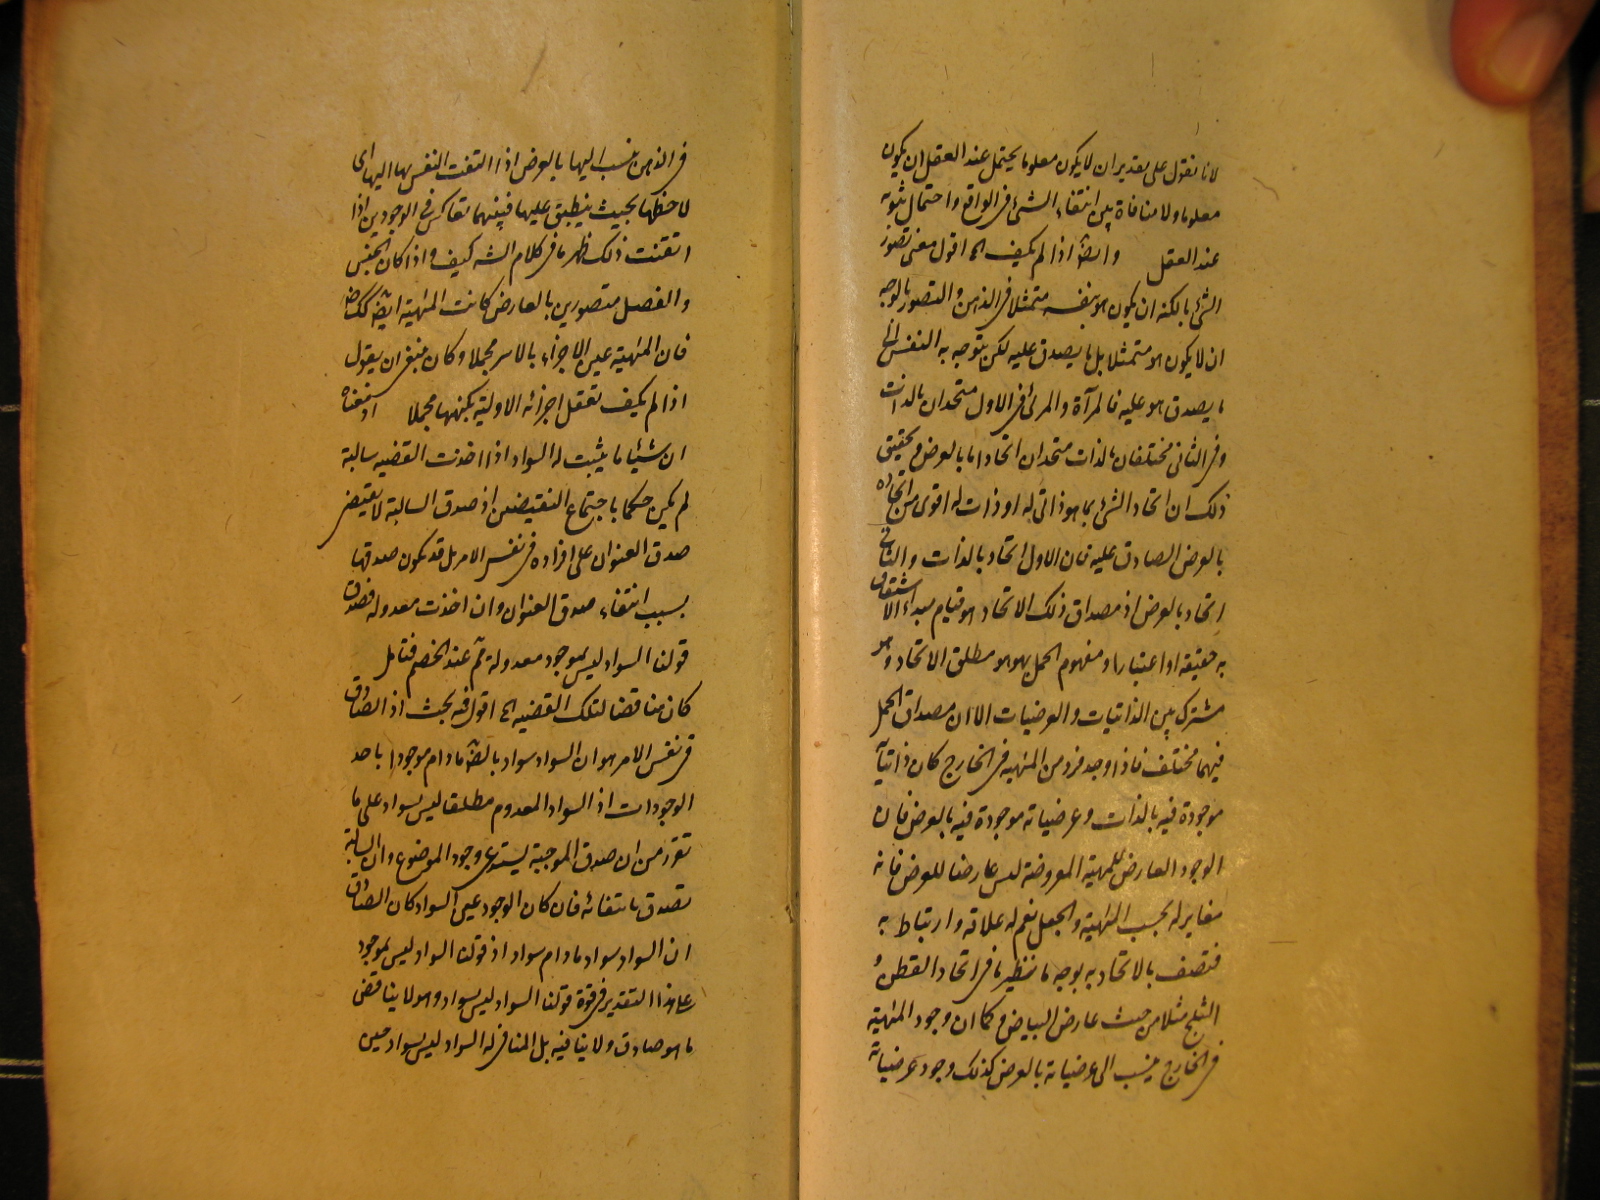 لانا نقول على تقدير ان لا يكون معلوما يحتمل عند العقل ان يكون
معلوما ولا منافاة بين انتفاء الشئ فى الواقع واحتمال ثبوته
عند العقل وايضا اذا لم يكيف الخ اقول معنى تصور
الشئ بالكنه ان يكون هو بنفسه متمثلا فى الذهن والتصور بالوجه
ان لا يكون هو متمثلا بل ما يصدق عليه لكن يتوجه به النفس الى
ما يصدق هو عليه فالمرآة والمرئى فى الاول متحدان بالذات
وفى الثانى مختلفان بالذات متحدان اتحادا ما بالعرض وتحقيق
ذلك ان اتحاد الشئ بما هو ذاتى له او ذات له اقوى من اتحاده
بالعرض الصادق عليه فان الاول اتحاد بالذات والثانى
اتحاد بالعرض اذ مصداق ذلك الاتحاد هو قيام مبداء الاشتقاق
به حقيقة او اعتبارا ومفهوم الحمل بهوهو مطلق الاتحاد وهو
مشترك بين الذاتيات والعرضيات الا ان مصداق الحمل
فيهما مختلف فاذا وجد فرد من المهية فى الخارج كان ذاتياته
موجودة فيه بالذات وعرضياته موجودة فيه بالعرض فان
الوجود العارض للمهية المعروضة ليس عارضا للعرض فانه
مغاير له بحسب المهية والجعل نعم له علاقة وارتباط به
فتصف بالاتحاد به بوجه ما نظير ما فى اتحاد القطن و
الثلج مثلا من حيث عارض البياض وكما ان وجود المهية
فى الخارج ينسب الى عرضياته بالعرض كذلك وجود عرضياته
فى الذهن ينسب اليها بالعرض اذا التفت النفس بها اليها اى
لاحظها بحيث ينطبق عليها فبينهما تعاكس فى الوجودين اذا
اتقنت ذلك ظهر ما فى كلام الشه كيف واذا كان الجنس
والفصل متصورين بالعارض كانت المهية ايضا كك
فان المهية عين الاجزاء بالاسر مجملا وكان ينبغى ان يقول
اذا لم يكيف تعقل اجزائه الاولية بكنهها مجملا اذ معناه
ان شيئا ما يثبت له السواد اذا اخذت القضيه سالبة
لم يكن حكما باجتماع النقيضين اذ صدق السالبة لا يقتضى
صدق العنوان على افراده فى نفس الامر بل قد يكون صدقها
بسبب انتفاء صدق العنوان وان اخذت معدوله فصدق
قولنا السواد ليس بموجود معدولة ثم عند الخصم فتامل
كان مناقضا لتلك القضيه الخ اقول فيه بحث اذ الصادق
فى نفس الامر هو ان السواد سواد بالضرورة ما دام موجودا باحد
الوجودات اذ السواد المعدوم مطلقا ليس بسواد على ما
تقرر من ان صدق الموجبة يستدعى وجود الموضوع وان السالبة
تصدق بانتفائه فان كان الوجود عين السواد كان الصادق
ان السواد سواد ما دام سوادا اذ قولنا السواد ليس بموجود
على هذا التقدير فى قوة قولنا السواد ليس بسواد وهو لا يناقض
ما هو صادق ولا ينافيه بل المنافى له السواد ليس بسواد حين